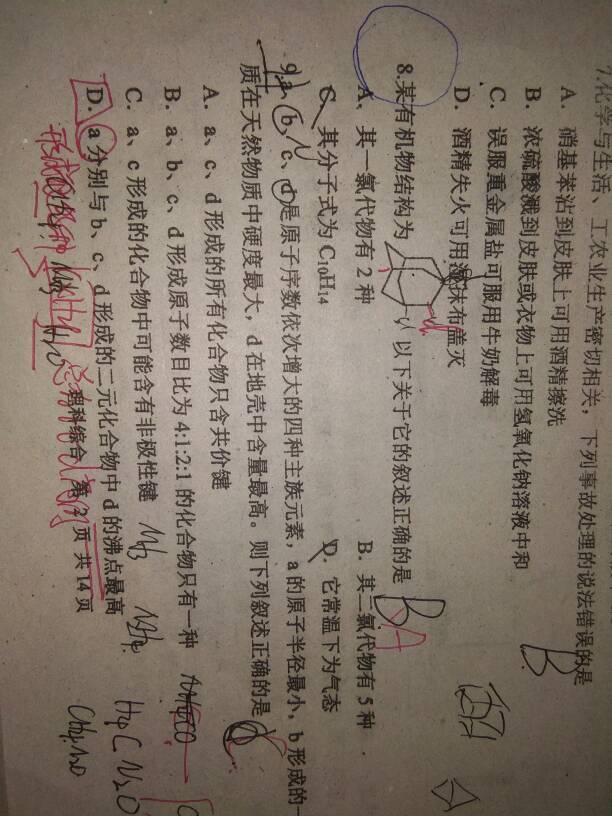 7.化学与生活、工农业生产密切相关，下列事故处理的说法错误的是 B
A. 硝基苯沾到皮肤上可用酒精擦洗
B. 浓硫酸溅到皮肤或衣物上可用氢氧化钠溶液中和
C. 误服重金属盐可服用牛奶解毒
D. 酒精失火可用湿抹布盖灭
8.某有机物结构为 以下关于它的叙述正确的是 B A
A、其一氯代物有 2 种 B. 其二氯代物有 5 种
C. 其分子式为 C₁₀H₁₄ D. 它常温下为气态
9.a、b、c、d 是原子序数依次增大的四种主族元素，a 的原子半径最小，b 形成的一
质在天然物质中硬度最大，d 在地壳中含量最高。则下列叙述正确的是
A. a、c、d 形成的所有化合物只含共价键
B. a、b、c、d 形成原子数目比为 4:1:2:1 的化合物只有一种
C. a、c 形成的化合物中可能含有非极性键 NH₃
D. a 分别与 b、c、d 形成的二元化合物中 d 的沸点最高
H₄CN₂O
CH₄N₂O
理科综合 第 2 页 共 14 页